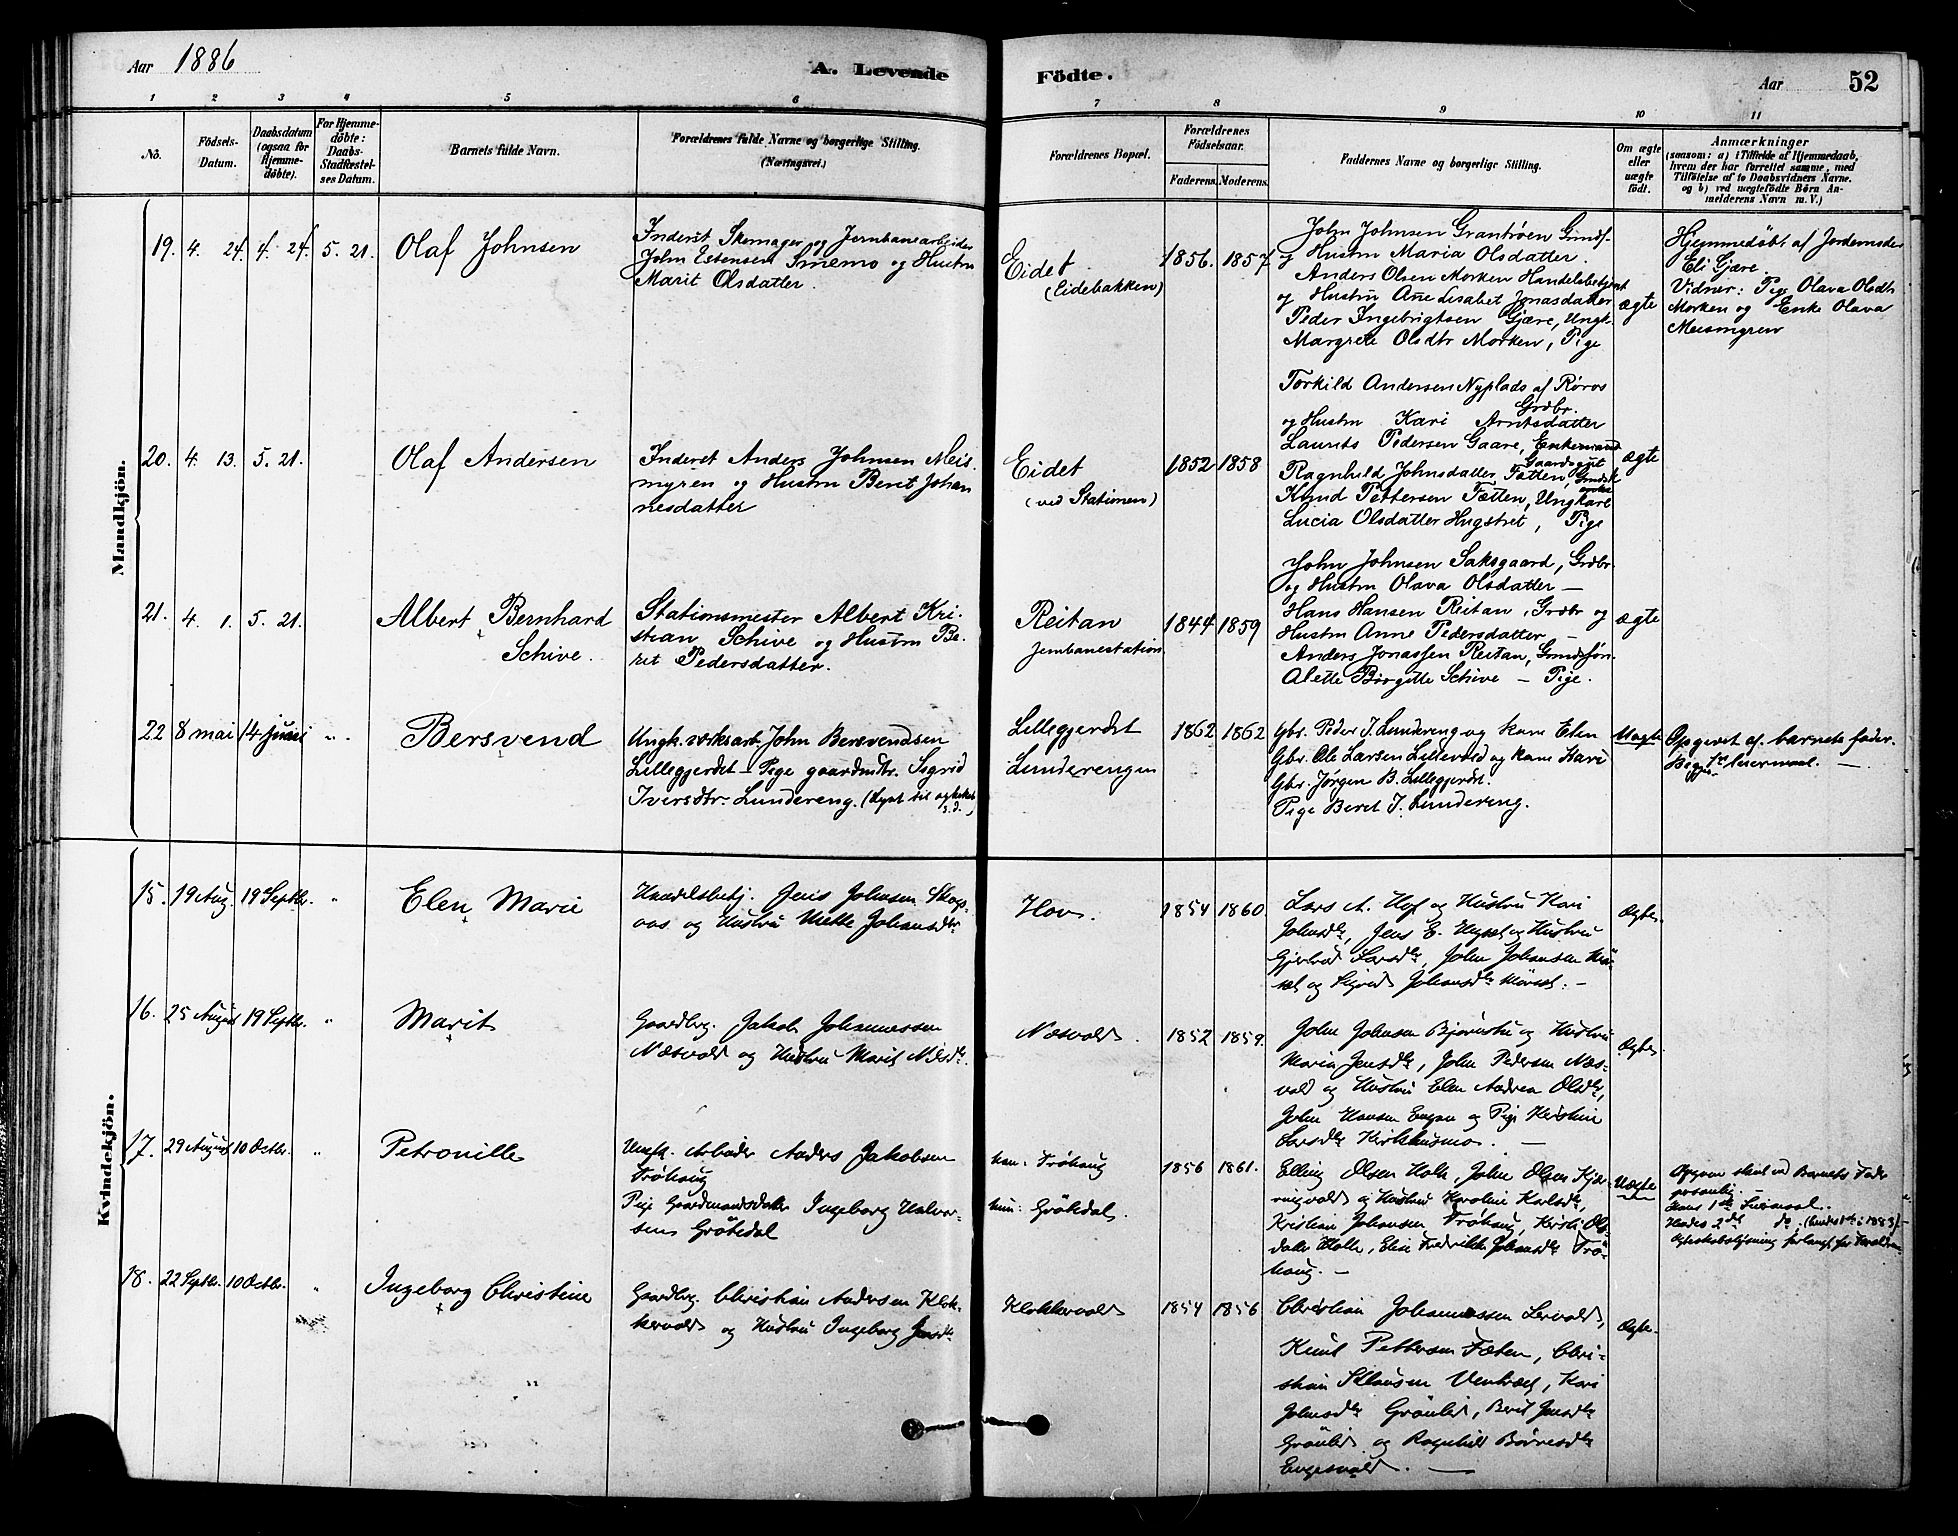 Aar 1886
A. Levende
Födte.
Aar
52
1 2 3 4 5 6 7 8 9 10 11
No.
Födsels-
Datum.
Daabsdatum
(ogsaa for
Hjemme-
döbte).
For Hjemme-
döbte:
Daabs-
Stadfæstel-
ses Datum.
Barnets fulde Navn.
Forældrenes fulde Navne og borgerlige Stilling.
(Næringsvei.)
Forældrenes Bopæl.
Forældrenes
Födselsaar.
Faderens. Moderens.
Faddernes Navne og borgerlige Stilling.
Om ægte
eller
uægte
födt.
Anmærkninger
(saasom: a) i Tilfælde af Hjemmedaab,
hvem der har forrettet samme, med
Tilföielse af to Daabsvidners Navne.
og b) ved uægtefödte Börn An-
melderens Navn m. V.)
Mandkjön.
19. 4. 24. 4. 24. 5. 21. Olaf Johnsen
Inderst Skomager og Jernbanearbeider
John Estensen Smemo og Hustru
Marit Olsdatter.
Eidet
(Eidebakken)
1856. 1857
John Johnsen Grantrøen Grinds.
og Hustru Maria Olsdatter.
Anders Olsen Morken Handelsbetjent
og Hustru Ane Lisabet Jonasdatter
Peder Ingebrigtsen Gjære, Ungk.
Margrete Olsdtr Morken, Pige
ægte
Hjemmedøbt af Jordemoder
Eli Gjære.
Vidner: Pige Olava Olsdtr
Morken og Enke Olava
Meismyren
20. 4. 13. 5. 21. Olaf Andersen
Inderst Anders Johnsen Meis
myren og Hustru Berit Johan
nesdatter
Eidet
(ved Stationen)
1852 1858
Torkild Andersen Nyplads af Røros
Grdbr.
og Hustru Kari Arntsdatter
Laurits Pedersen Gaare, Enkemand
Gaardsgut
Ragnhild Johnsdatter Fætten
Knud Pettersen Fætten, Ungkarl
Lucia Olsdatter Hugstret, Pige
ægte
21. 4. 1. 5. 21. Albert Bernhard
Schive.
Stationsmester Albert Kri-
stian Schive og Hustru Be-
ret Pedersdatter.
Reitan
Jernbanestation
1844 1859
John Johnsen Saksgaard, Grdbr.
og Hustru Olava Olsdatter —
Hans Hansen Reitan, Grdbr og
Hustru Anne Pedersdatter —
Anders Jonassen Reitan,
Alette Birgitte Schive — Pige.
ægte
22 8 mai 14 juni " Bersvend
Ungk. verksarb. John Bersvendsen
Lilleggjerdet — Pige gaardmdtr. Sigrid
Iversdtr. Lundereng. (Lyst til ægteskab
s. d.)
Lilleggjerdet
Lunderengen
1862 1862
Gbr. Peder I. Lundereng og kone Elen
Gbr. Ole Larsen Lillevold og kone Kari
Gbr. Jørgen B. Lilleggjerdet.
Pige Beret I. Lundereng.
Uægte
Opgivet af barnets fader.
Begges 1ste leiermaal. —
Kvindekjön.
15. 19 Aug. 19 Septbr. " Elen Marie
Handelsbetj. Jens Johnsen Skogs-
aas og Hustru Mette Johansdtr
Hov.
1854 1860.
Lars A. Hof og Hustru Kari
Johnsdtr, Jens E. og Hustru
Gjertrud Larsdtr, John Johansen Mör-
set og Sigrid Johansdtr Mörset. —
Ægte.
16. 25 August 19 Septbr. " Marit
Gaardbrg. Jakob Johannessen
Næsvold og Hustru Marit Nilsdtr.
Næsvold.
1852 1859.
John Johnsen Bjørnstu og Hustru
Maria Jensdtr, John Pedersen Næs-
vold og Hustru Elen Andrea Olsdtr,
John Hansen Engan og Pige Kirstine
Larsdtr Kirkhusmo. —
Ægte.
17. 29 August 10 Octbr. " Petronille
Ungk. Arbeider Anders Jakobsen
Tröhaug
Pige Gaardmandsdatter Ingeborg Halvor-
sen Grötedal
han: Tröhaug
hun: Grötedal.
1856 1861.
Elling Olsen Holte, John Olsen Kjær-
ringvold og Hustru Karoline Karlsdtr,
Kristian Johansen Tröhaug, Kirsti Ols-
datter Holte, Elise Fredrikke Johansdtr Trö-
haug. —
Uægte
Opgiven skriftl. ved Barnets Fader
personlig.
Hans 1ste Leiermaal.
Hendes 2det do. (hendes 1ste i 1883) —
Ægteskabslysning forlangt for Forældrene
18. 22 Septbr. 10 Octbr. " Ingeborg Christine
Gaardbrg. Christian Andersen Klok-
kervold og Hustru Ingeborg Jensdtr
Klokkervold
1854 1856
Christian Johannessen Lervold,
Knut Pettersen Fæten, Chri-
stian Venteæt, Kari
Johnsdtr Grönlid, Berit Jensdtr
Grönlid og Ragnhild Børresdtr
Engesvold. —
Ægte.